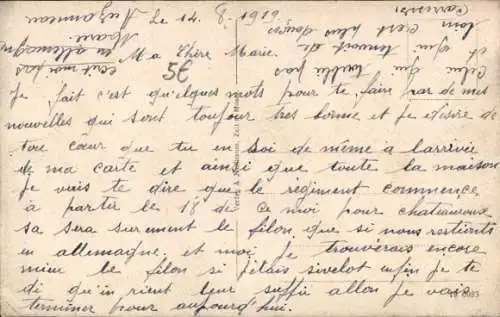 Le 14. 8. 1919
Ma Chère Marie.
Je fait c'est quelques mots pour te faire par de mes
nouvelles qui sont toujour tres bonne et je desire de
tout cœur que tu en soi de même a larrivée
de ma carte et ainsi que toute la maison
je vais te dire que le regiment commence
a partir le 18 de ce moi pour chateauroux
sa sera surement le filon, que si nous restions
en allemagne. et moi je trouverais encore
mieu le filon si jetais sivelot enfin je te
di qu'in rient leur suffit allon je vais
terminer pour aujourd'hui.
Celui qui t'oublie pas
et qui tenvoit de
loin c'est plus doux
35